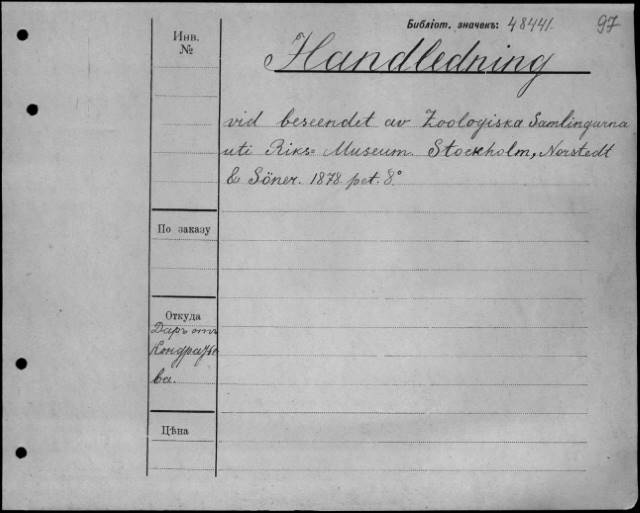 Библіот. значекъ: 48441. 97
Инв. №
Handledning
vid beseendet av Zoologiska Samlingarna
uti Riks= Museum. Stockholm, Norstedt
& Söner. 1878. pet. 8°
По заказу
Откуда
Даръ отъ
Кондратье
ва.
Цѣна